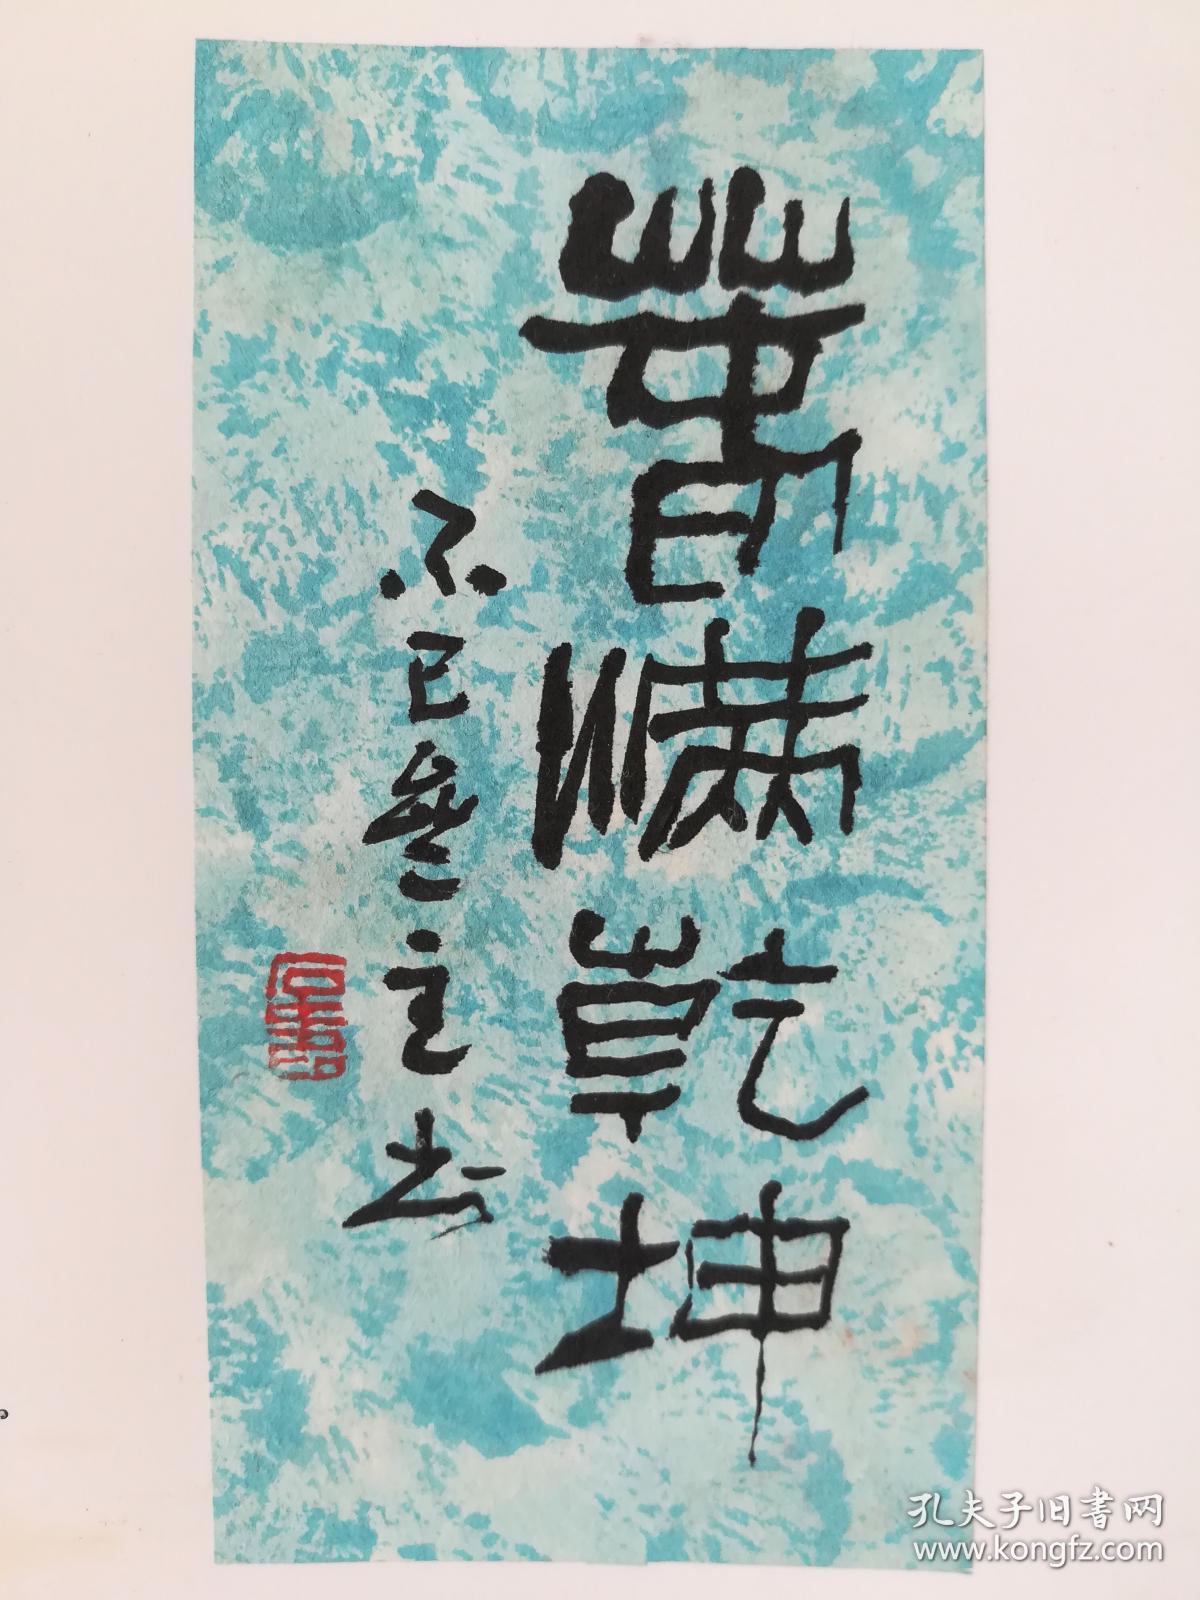 萅滿乾坤
不已齋主书
孔夫子旧書网
www.kongfz.com